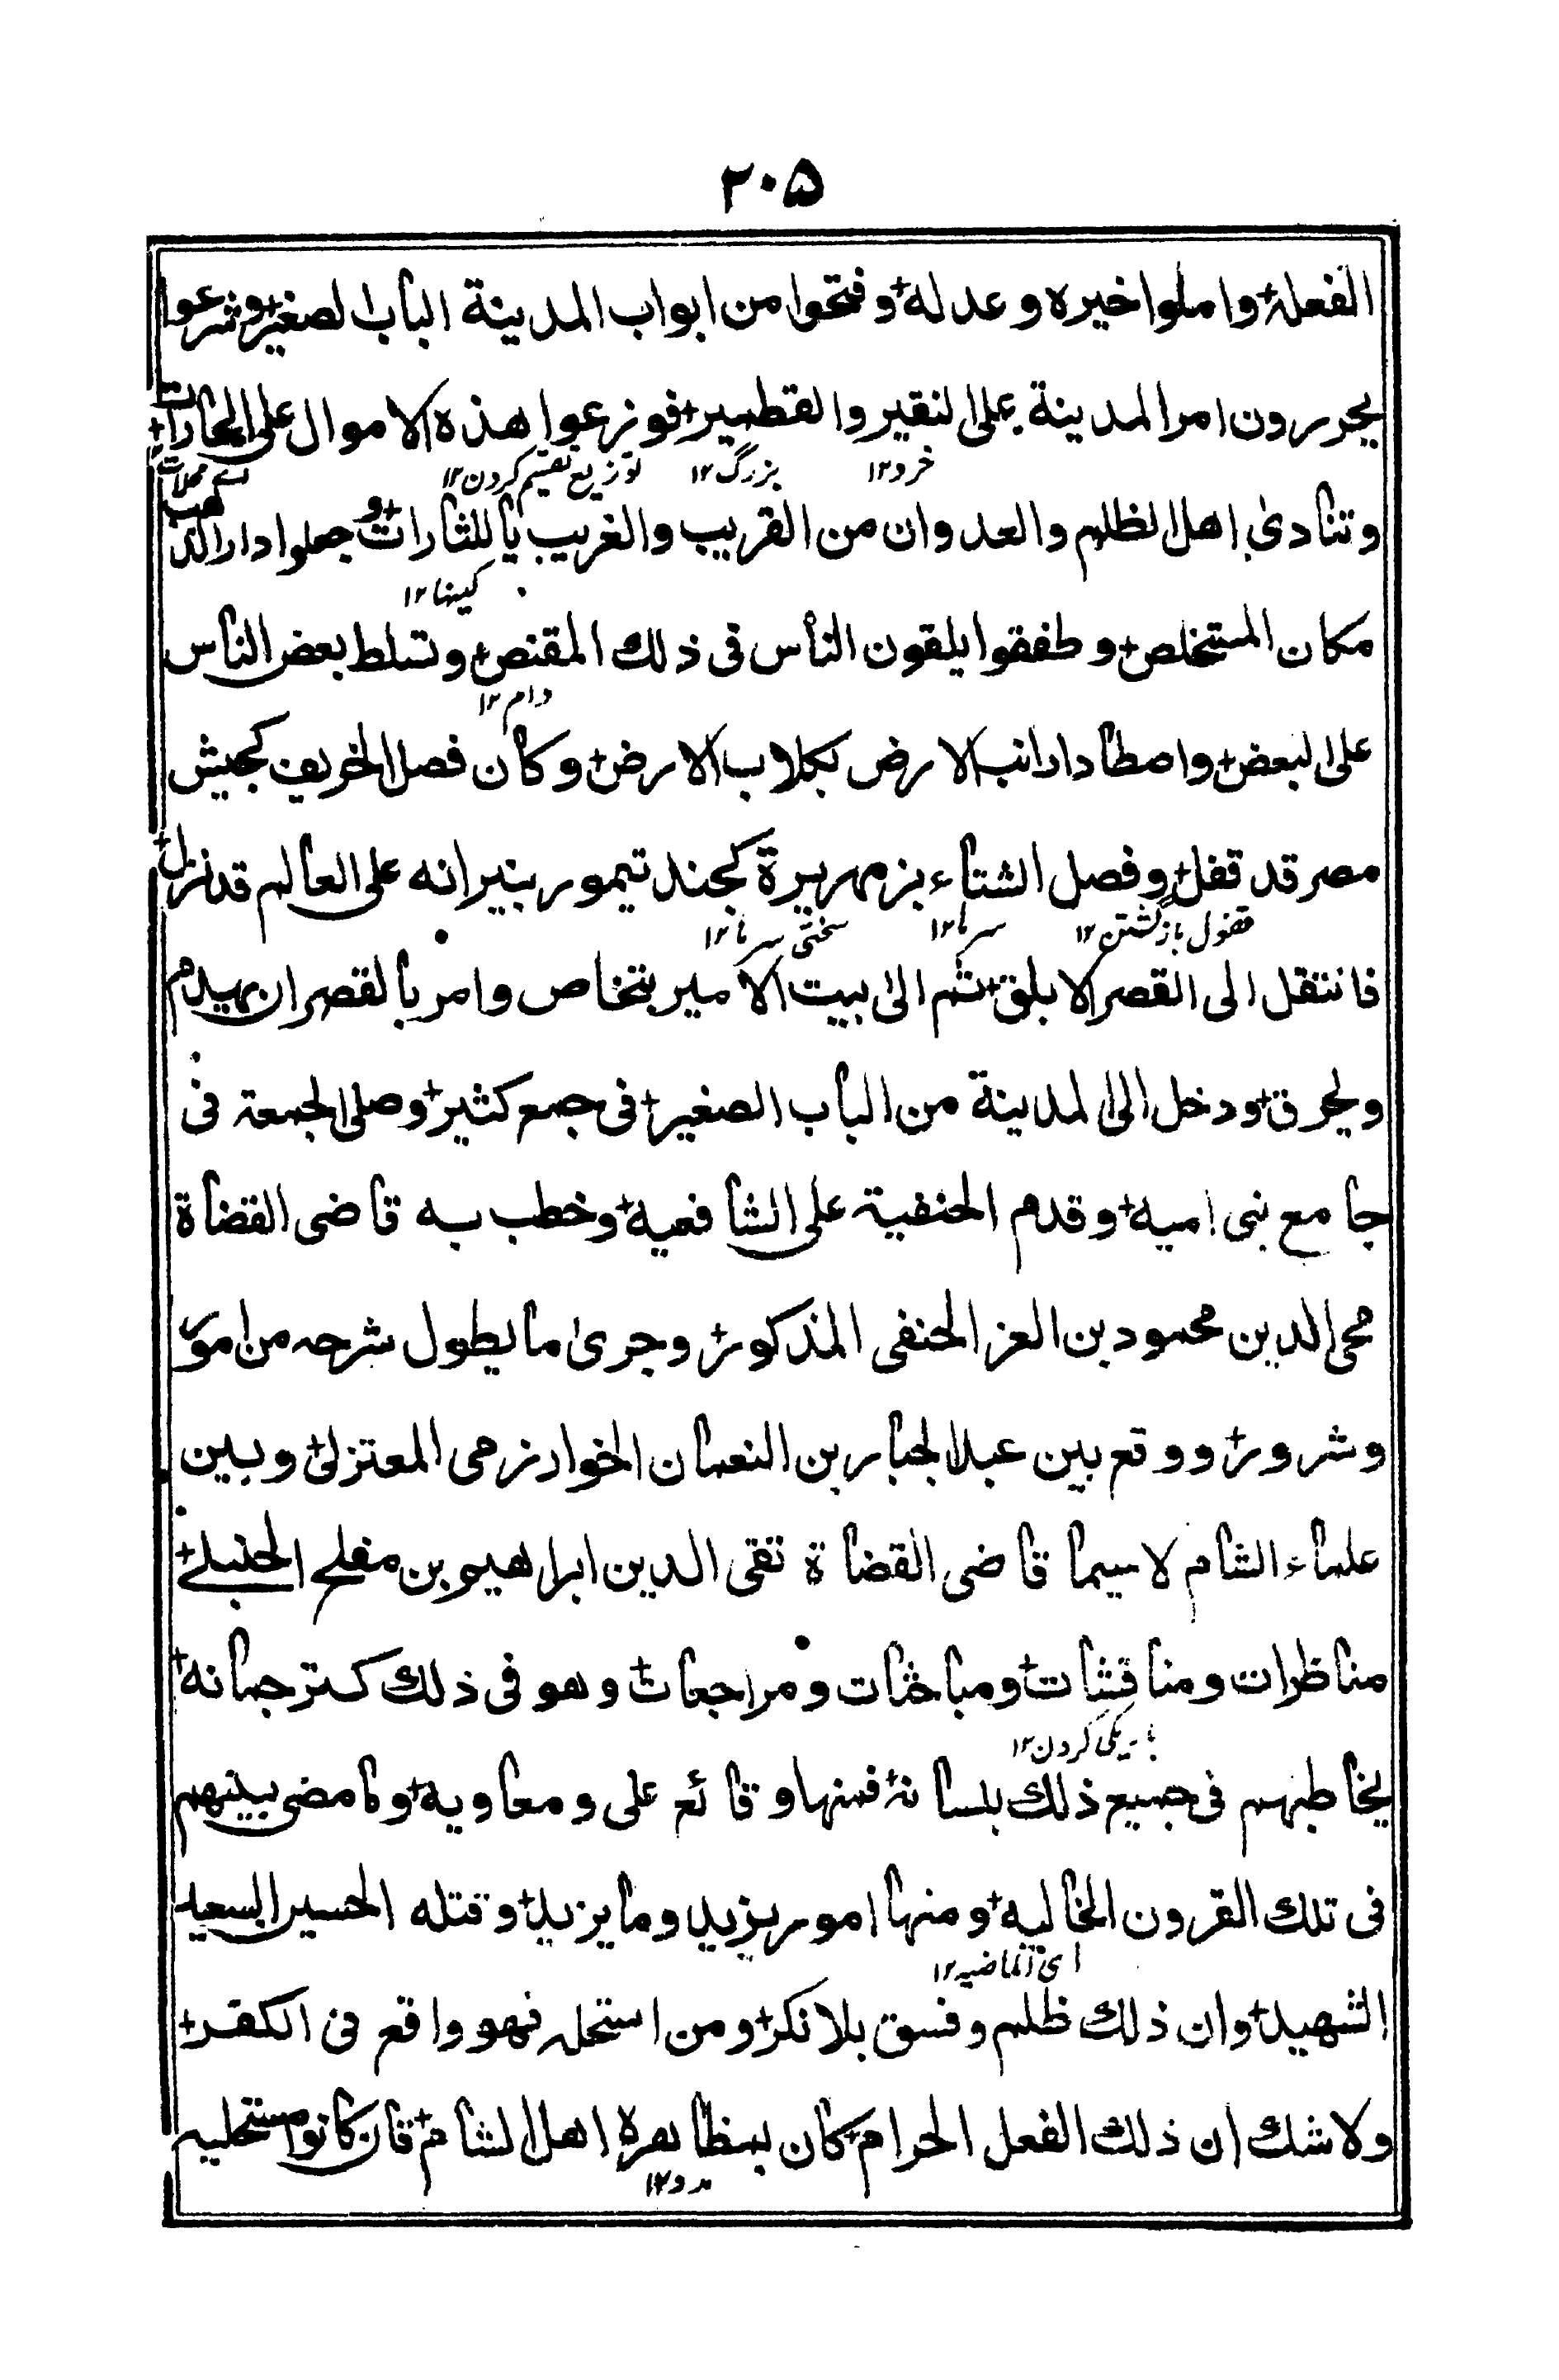 ٢٠٥
الفعله+ واملوا خيره وعدله+ وفتحوا من ابواب المدينة الباب الصغير+ وشرعوا
يحررون امر المدينة على النقير والقطمير+ فوزعوا هذه الاموال على الحارات+
خرد١٢ بزرگ١٢ توزيع تقسيم كردن١٢ اے محلات
وتنادى اهل الظلم والعدوان من القريب والغريب يا للثارات+ وجعلوا دار الذهب
كينها١٢
مكان المستخلص+ وطفقوا يلقون الناس فى ذلك المقنص+ وتسلط بعض الناس
دام١٢
على البعض+ واصطادارانب الارض بكلاب الارض+ وكان فصل الخريف كجيش
مصر قد قفل+ وفصل الشتاء بزمهريرة كجند تيمور بنيرانه على العالم قد نزل+
قفول بازگشتن١٢ سرما١٢ سختى سرما١٢
فانتقل الى القصر الابلق+ ثم الى بيت الامير بتخاص وامر بالقصر ان يهدم
ويحرق+ ودخل الى المدينة من الباب الصغير+ فى جمع كثير+ وصلى الجمعة فى
جامع بنى اميه+ وقدم الحنفية على الشافعيه+ وخطب به قاضى القضاة
محى الدين محمود بن العز الحنفى المذكور+ وجرى ما يطول شرحه من امور
وشرور+ ووقع بين عبد الجبار بن النعمان الخوارزمى المعتزلى+ وبين
علماء الشام لاسيما قاضى القضاة تقى الدين ابراهيم بن مفلح الحنبلے+
مناظرات ومناقشات+ ومباحثات ومراجعات+ وهو فى ذلك كترجمانه+
باريكى كردن١٢
يخاطبهم فى جميع ذلك بلسانه+ فمنها وقائع على ومعاويه+ وما مضى بينهم
فى تلك القرون الخاليه+ ومنها امور يزيد وما يزيد+ وقتله الحسين السعيد
اى الماضيه١٢
الشهيد+ وان ذلك ظلم وفسق بلا نكر+ ومن استحله فهو واقع فى الكفر+
ولا شك ان ذلك الفعل الحرام+ كان بمظاهرة اهل الشام+ فان كانوا مستحليه
مدد١٢